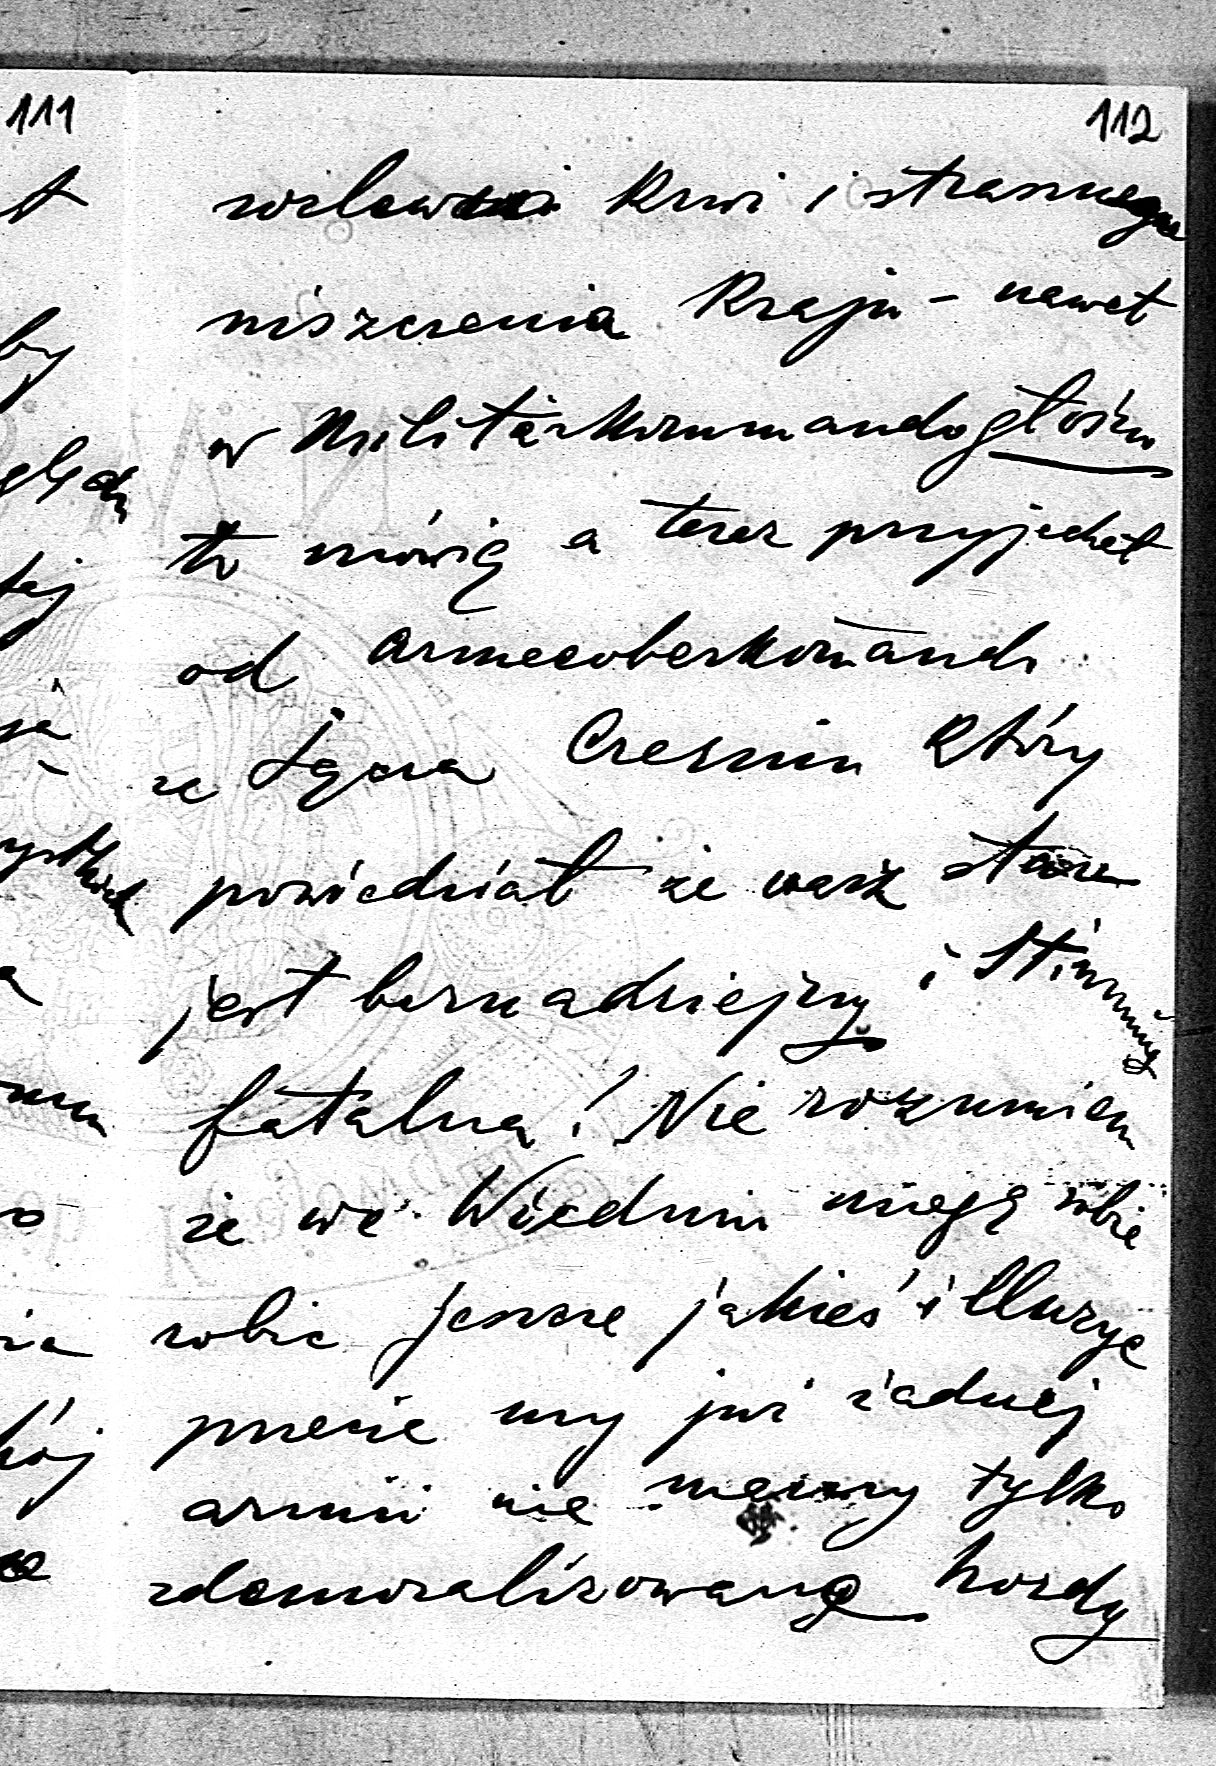 111
112
krwi i strasznego
niszczenia Kraju - nawet
w Militärkommando głośno
to mówią a teraz przyjechał
od Armeeoberkommando
Czernin który
powiedział że nasz stan
jest beznadziejny i Stimmung
fatalna! Nie rozumiem
że we Wiedniu mogą sobie
robić jeszcze jakieś illuzye
przecie my już żadnej
armii nie mamy tylko
zdemoralizowaną hordy